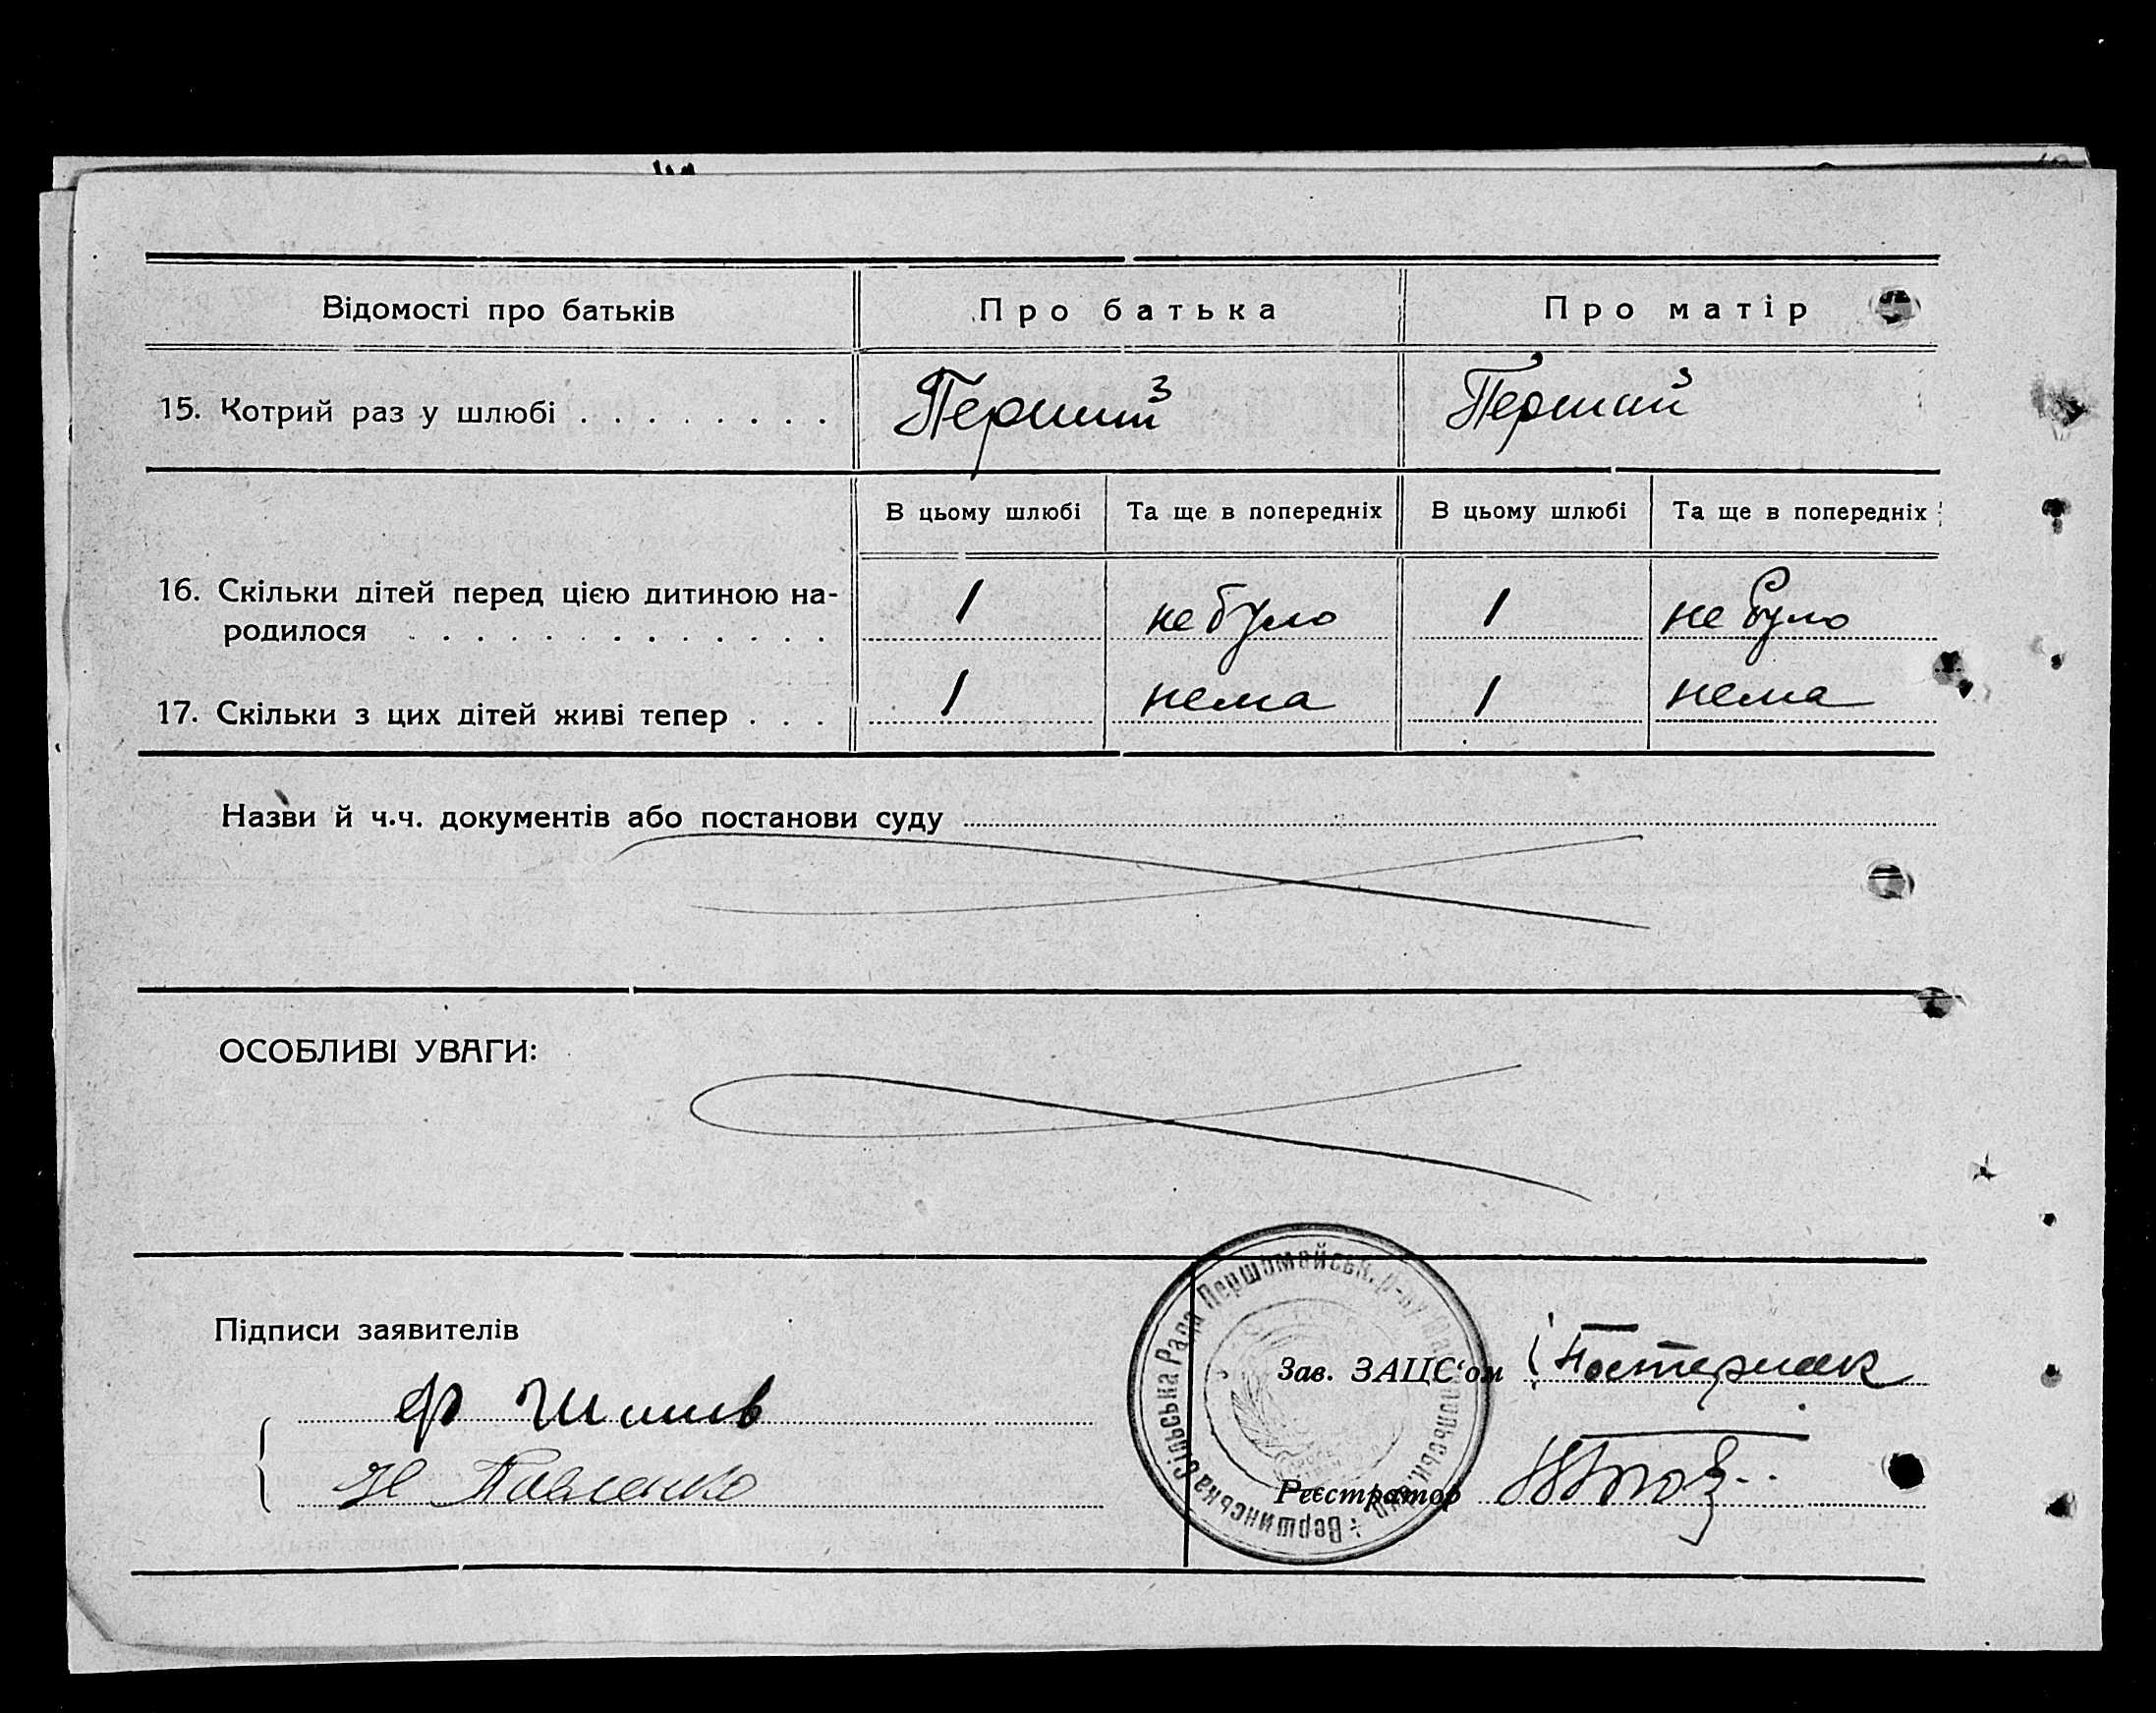 Відомості про батьків
Про батька
Про матір
15. Котрий раз у шлюбі . . . . . . . .
Перший
Перший
В цьому шлюбі
Та ще в попередніх
В цьому шлюбі
Та ще в попередніх
16. Скільки дітей перед цією дитиною на-
родилося . . . . . . . . . . . . .
1
не було
1
не було
17. Скільки з цих дітей живі тепер . . .
1
нема
1
нема
Назви й ч.ч. документів або постанови суду
ОСОБЛИВІ УВАГИ:
Підписи заявителів
Н Павленко
Зав. ЗАЦС‘ом
Пастернак
Реєстратор
Вершинська Сільська Рада Першомайськ. р-ну